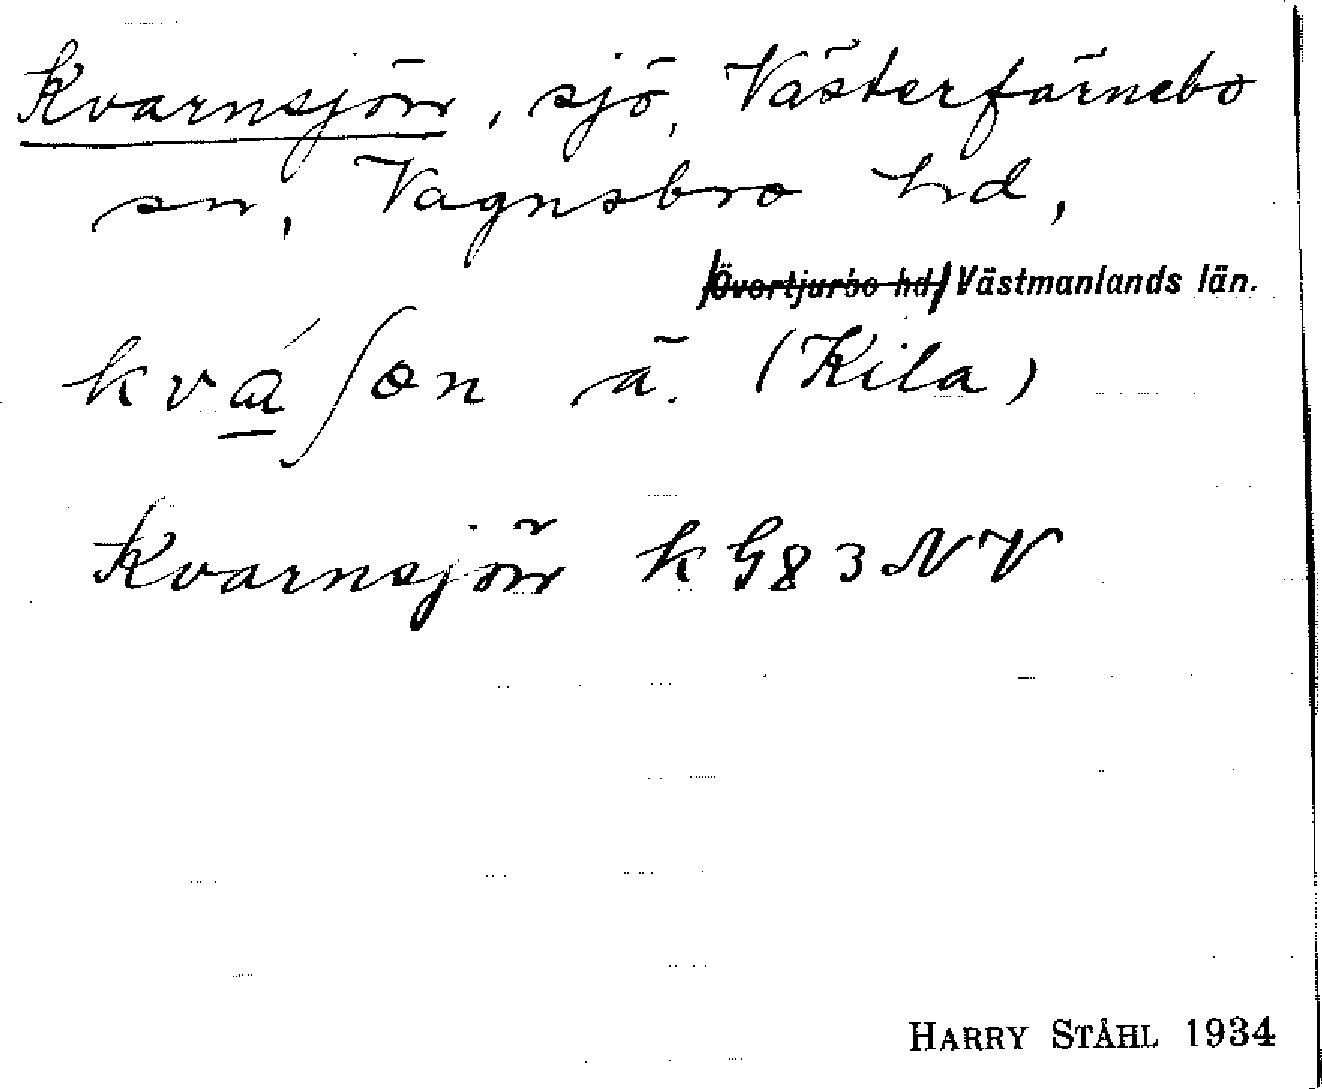 Kvarnsjön, sjö, Västerfärnebo
sn, Vagnsbro hd,
Övertjurbo hd, Västmanlands län.
kvá̱ʃøn ä. (Kila)
Kvarnsjön k G83NV
HARRY STÅHL 1934